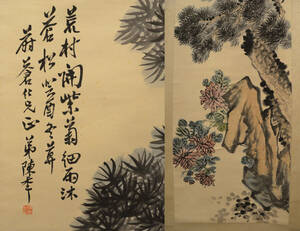 荒村開紫菊細雨沐
蒼松癸酉冬並
蔚蒼仁兄正弟陳年